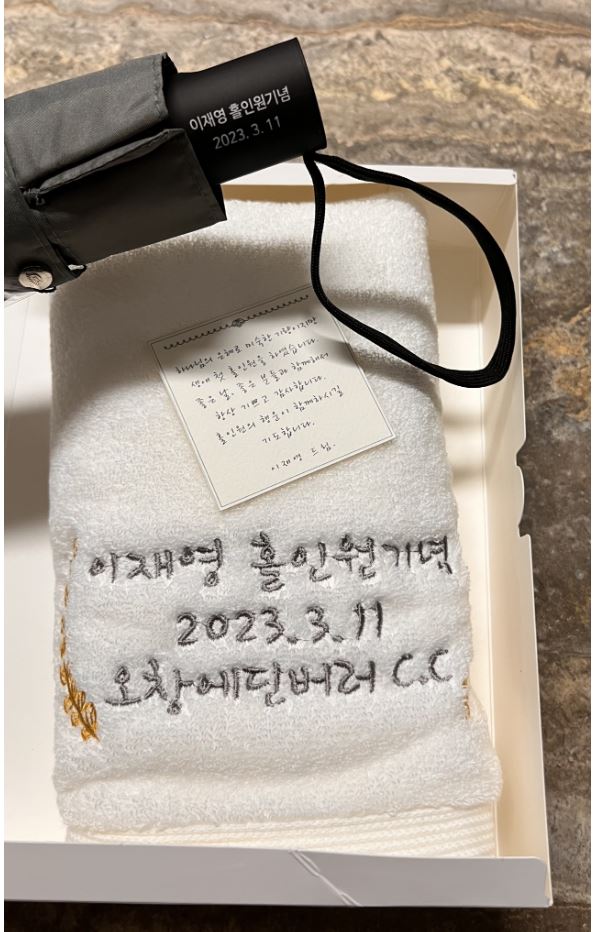 이재영 홀인원기념
2023. 3. 11
하나님의 은혜로 미숙한 기량이지만
생애 첫 홀인원을 하였습니다.
좋은 날, 좋은 분들과 함께해서
항상 기쁘고 감사합니다.
홀인원의 행운이 함께하시길
기도합니다.
이재영 드림.
이재영 홀인원기념
2023.3.11
오창에딘버러 C.C